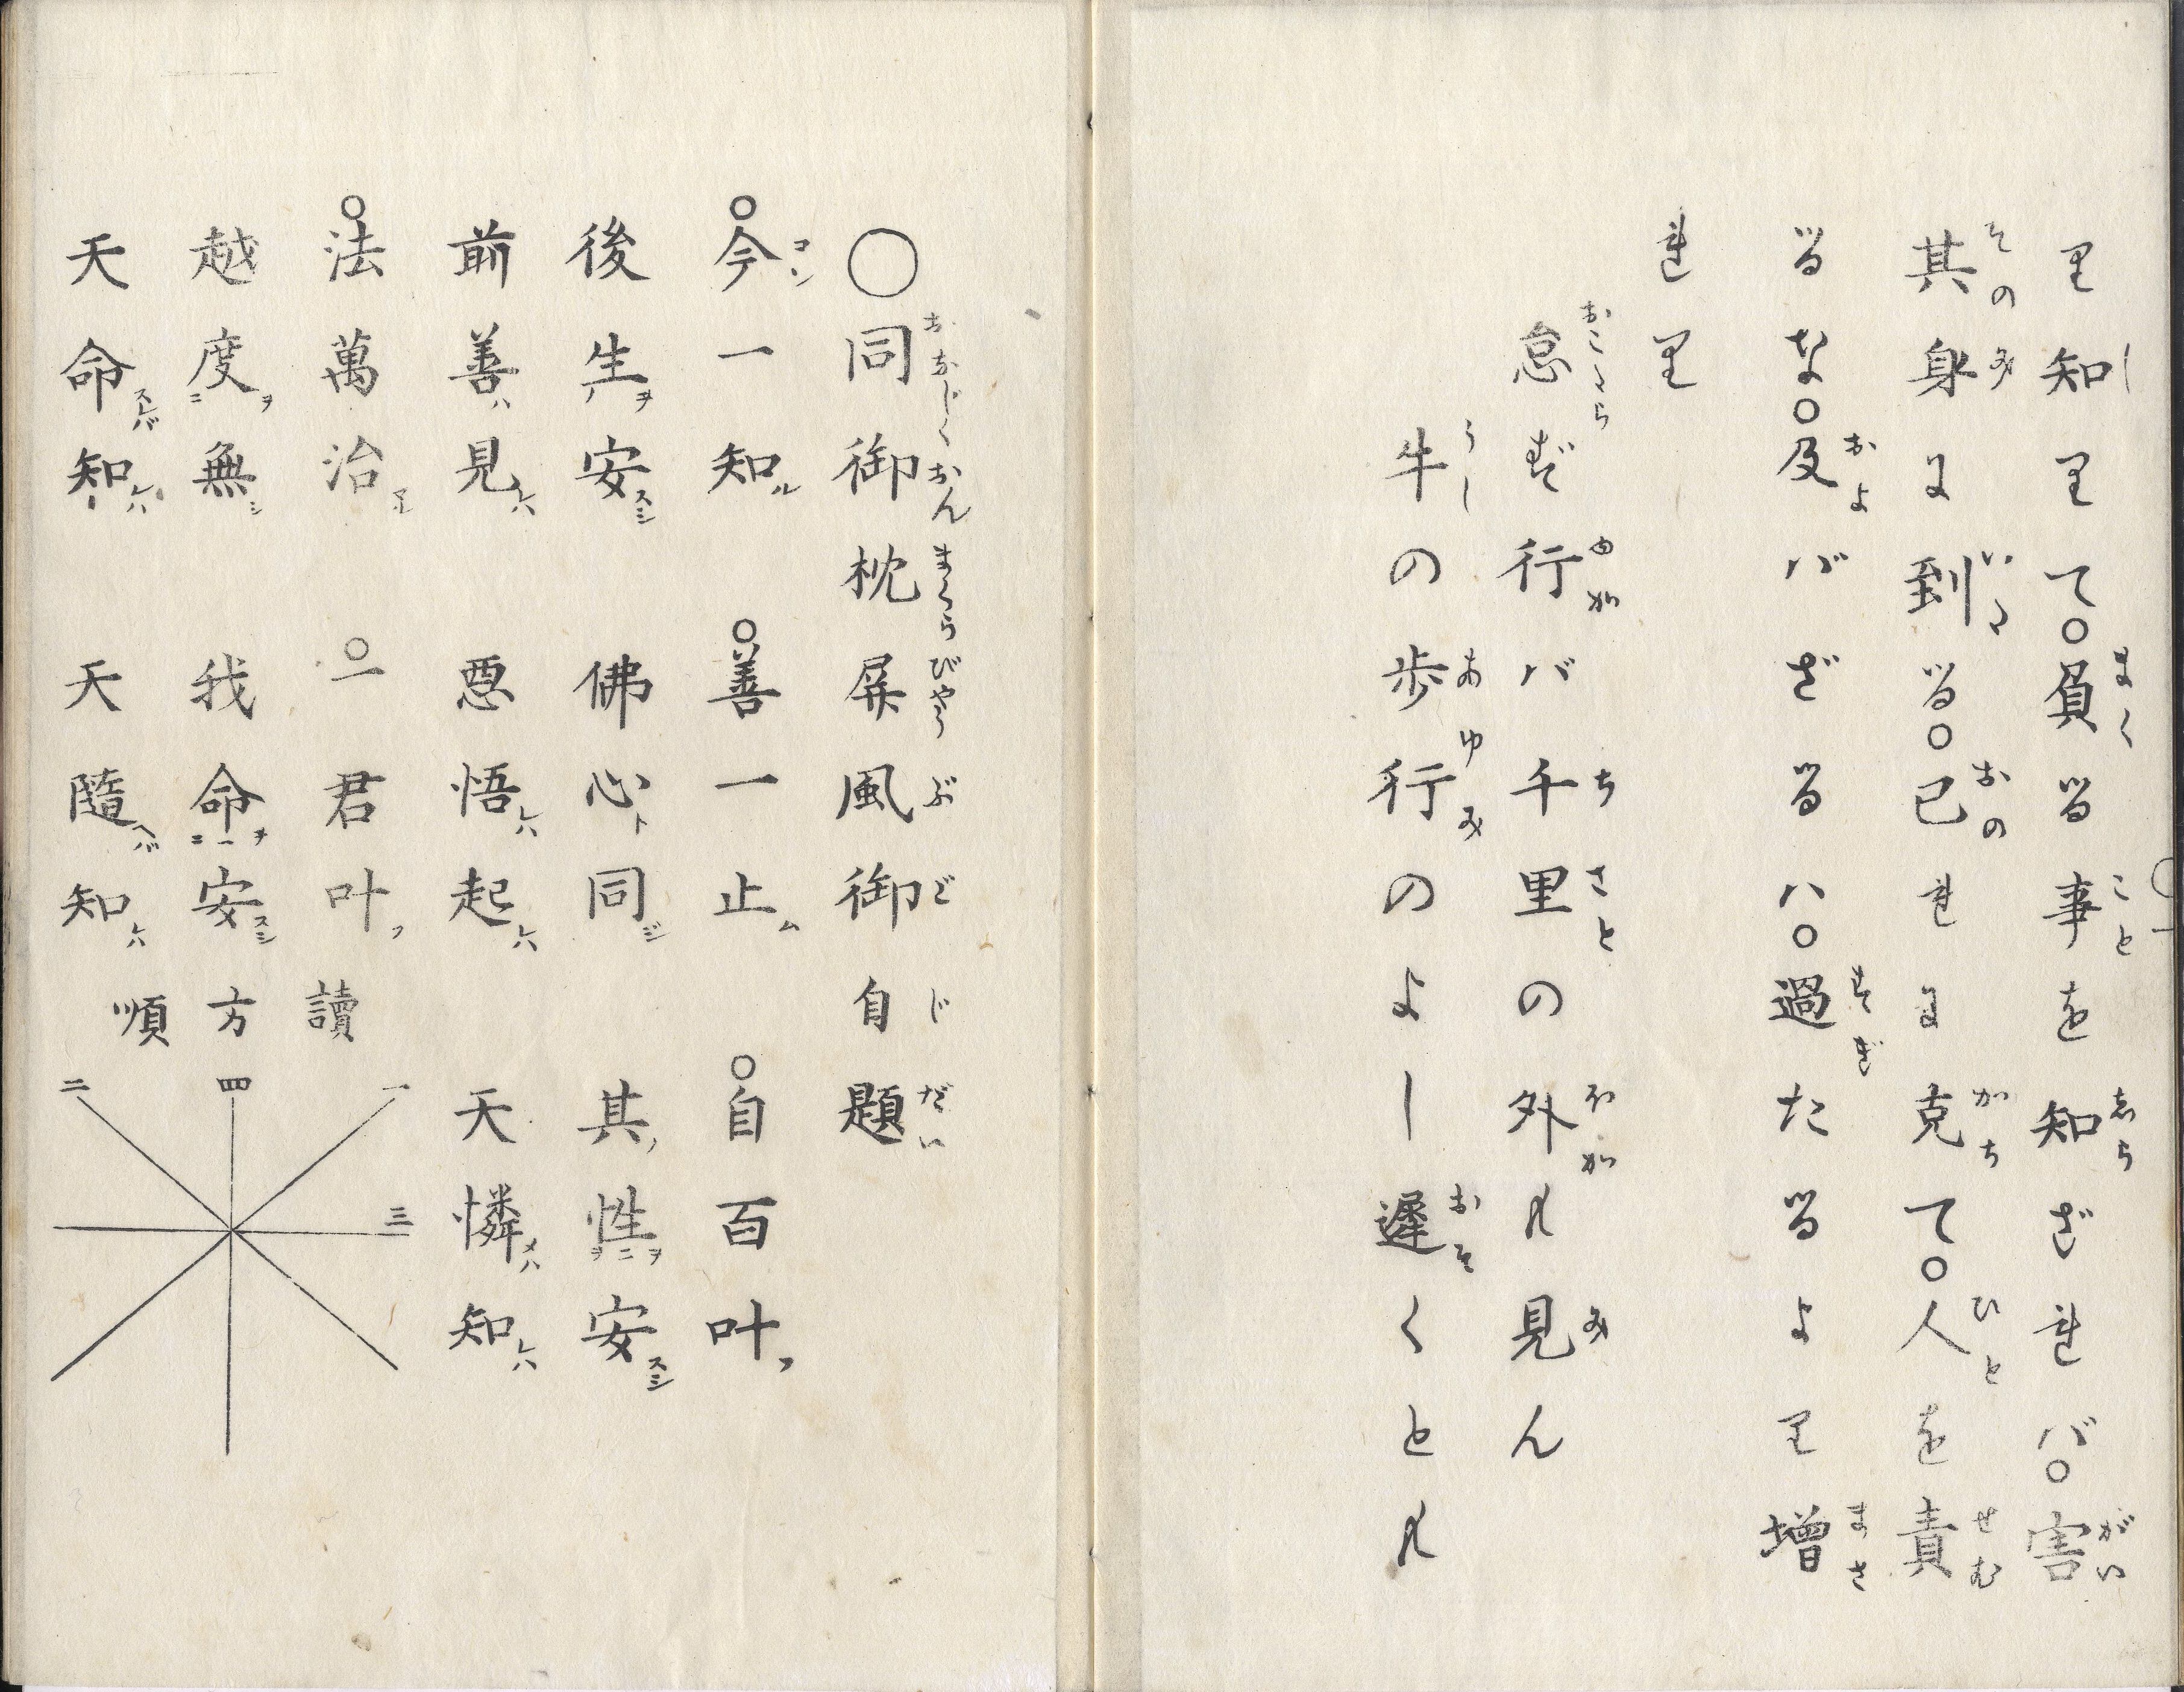 り知りて○負る事を知らざれバ○害
其身に到る○己れに克て○人を責
るな○及バざるハ○過たるより増
れり
怠ず行バ千里の外も見ん
牛の歩行のよし遅くとも
○同御枕屏風御自題
○今一知ル　○善一止ム　○自百叶フ
後生ヲ安スシ　佛心ト同ジ　其ノ性ヲ安スシ
前善ハ見レハ　悪悟レハ起レハ　天憐メハ知レハ
○法萬治　○一君叶フ
越度ヲ無シ　我命ヲ安スシ
天命スレバ知レハ　天隨ヘバ知レハ
讀方順
一
二
三
四